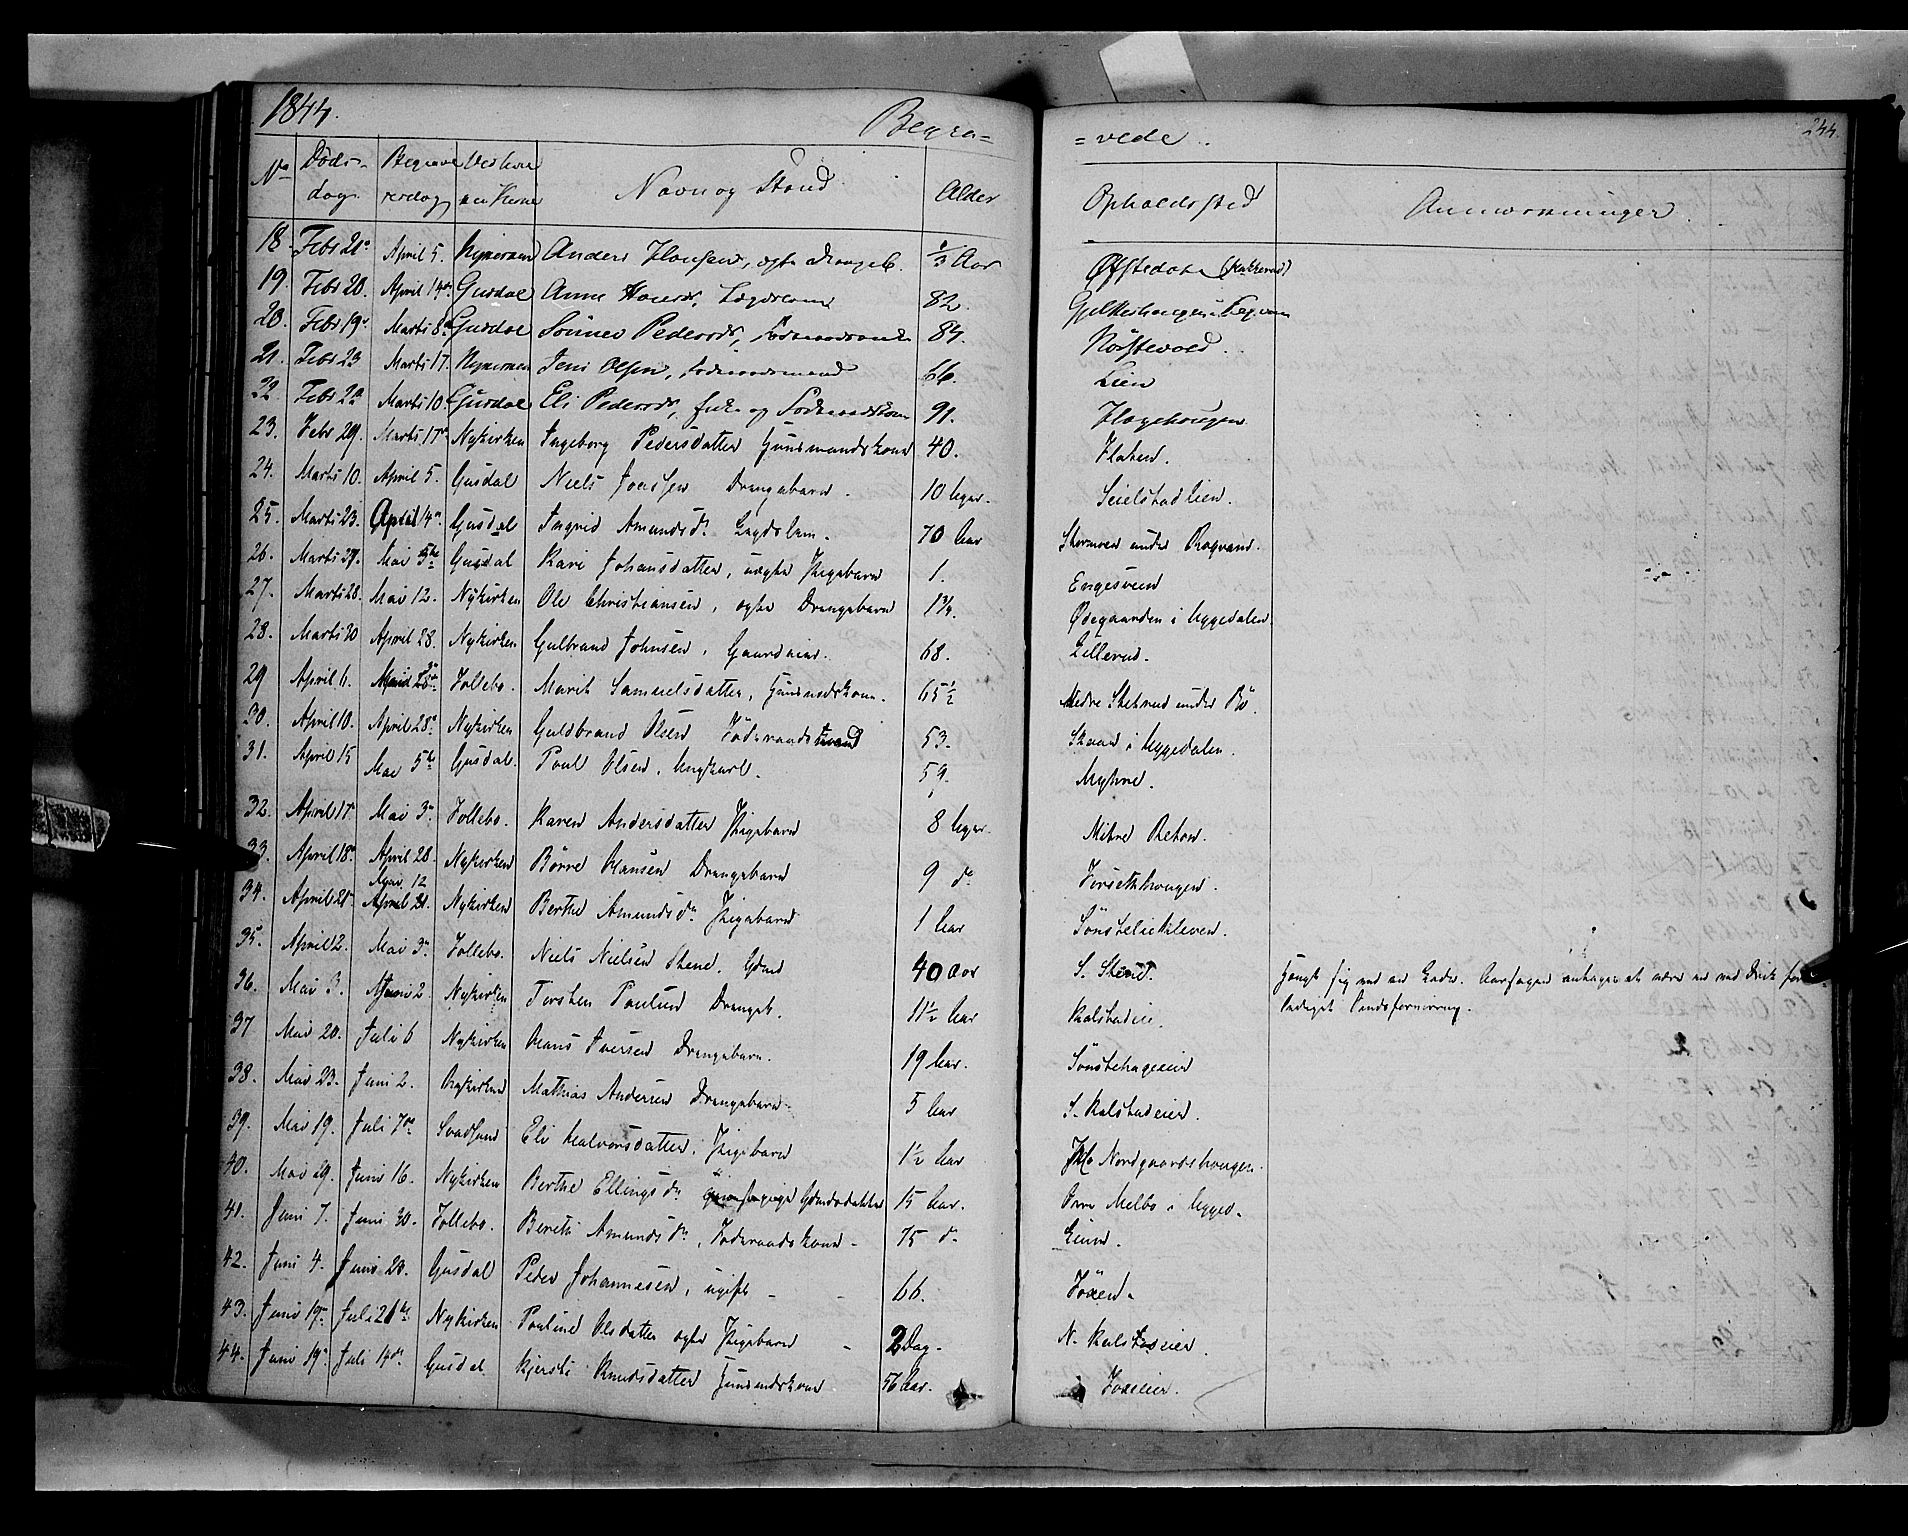 1844.
Begra=
=vede.
244.
No Døds-dag. Begravelsesdag Ved hvilken Kirke Navn og Stand Alder Opholdssted Anmærkninger.
18. Febr 21. April 5. Nykirken Anders Hansen, ægte Drengeb. 1/3 Aar Øfstedal
19. Febr 20. April 14de Gusdal Anne Lægdslem 82.
20. Febr 19. Marts 8 Gusdal Pedersdr, Föderaads 84. Nörstevold.
21. Febr 23 Marts 17. Nykirken Jens Olsen, Föderaadsmand 66. Lien
22 Febr 22 Marts 10. Gusdal Eli Pedersdr, Enke og Föderaadskone 91. Hagehougen
23. Febr 29. Marts 17 Nykirken Ingeborg Pedersdatter Huusmandskone 40. Flaten.
24. Marts 10. April 5. Gusdal Niels Drengebarn. 10 Uger. Seielstadlien.
25. Marts 23. April 14. Gusdal Ingrid Amundsdr. Lægdslem. 70 Aar under
26. Marts 27. Mai 5te Gusdal Kari Johansdatter, uægte Pigebarn 1. Engesveen
27. Marts 28. Mai 12. Nykirken Ole Christiansen, ægte Drengebarn 1 3/4. Ødegaarden i Uggedalen.
28. Marts 30 April 28. Nykirken Gulbrand Johnsen, Gaardeier. 68. Lillerud.
29 April 6. Mai Follebo. Marit Samuelsdatter, Huusmdskone. 65 1/2 Nedre under Bö.
30. April 10. April 28. Nykirken Guldbrand Olsen Föderaadsmand 53. Skaar i Uggedalen.
31. April 15 Mai 5te Gusdal. Poul Olsen, Ungkarl. 59. Myhre.
32. April 17. Mai 3. Follebo. Karen Andersdatter Pigebarn 8 Uger.
33. April 18. April 28. Nykirken Börre Hansen Drengebarn 9 do Forsethhougen.
34. April 21. Mai 12 April 21. Nykirken Berthe Amundsdr. Pigebarn 1 Aar
35. April 12. Mai 3. Follebo. Niels Nielsen 40 Aar S. Hængt sig ved en Aarsagen antages at være en ved Drik for-
anlediget Sindsforvirring.
36. Mai 3. Juni 2 Nykirken Torsten Poulsen Drengeb. 11 1/2 Aar Kalstadeie.
37 Mai 20. Juli 6 Nykirken Hans Iversen Drengebarn. 19 Aar.
38. Mai 23. Juni 2. Nykirken Mathias Andersen Drengebarn 5 Aar S. Kalstadeier.
39. Mai 19. Juli 7de Svadsund Eli Halvorsdatter, Pigebarn 1 1/2 Aar Nordgaardshougen.
40. Mai 29. Juni 16. Nykirken Berthe Ellingsdr. Gdmdsdatter 15 Aar. Øvre Melbö i Ugged.
41. Juni 7. Juni 30. Follebo. Berethe Amundsdr, Föderaadskone 75 do
42. Juni 4. Juni 20. Gusdal Peder Johannesen, ugift 66. Foxen.
43. Juni 19. Juli 21de Nykirken Pauline Olsdatter ægte Pigebarn 2 Dag. N. Kalstadeier.
44. Juni 19. Juli 14de Gusdal Kjersti Knudsdatter Huusmdskone 56 Aar. Foxeier.